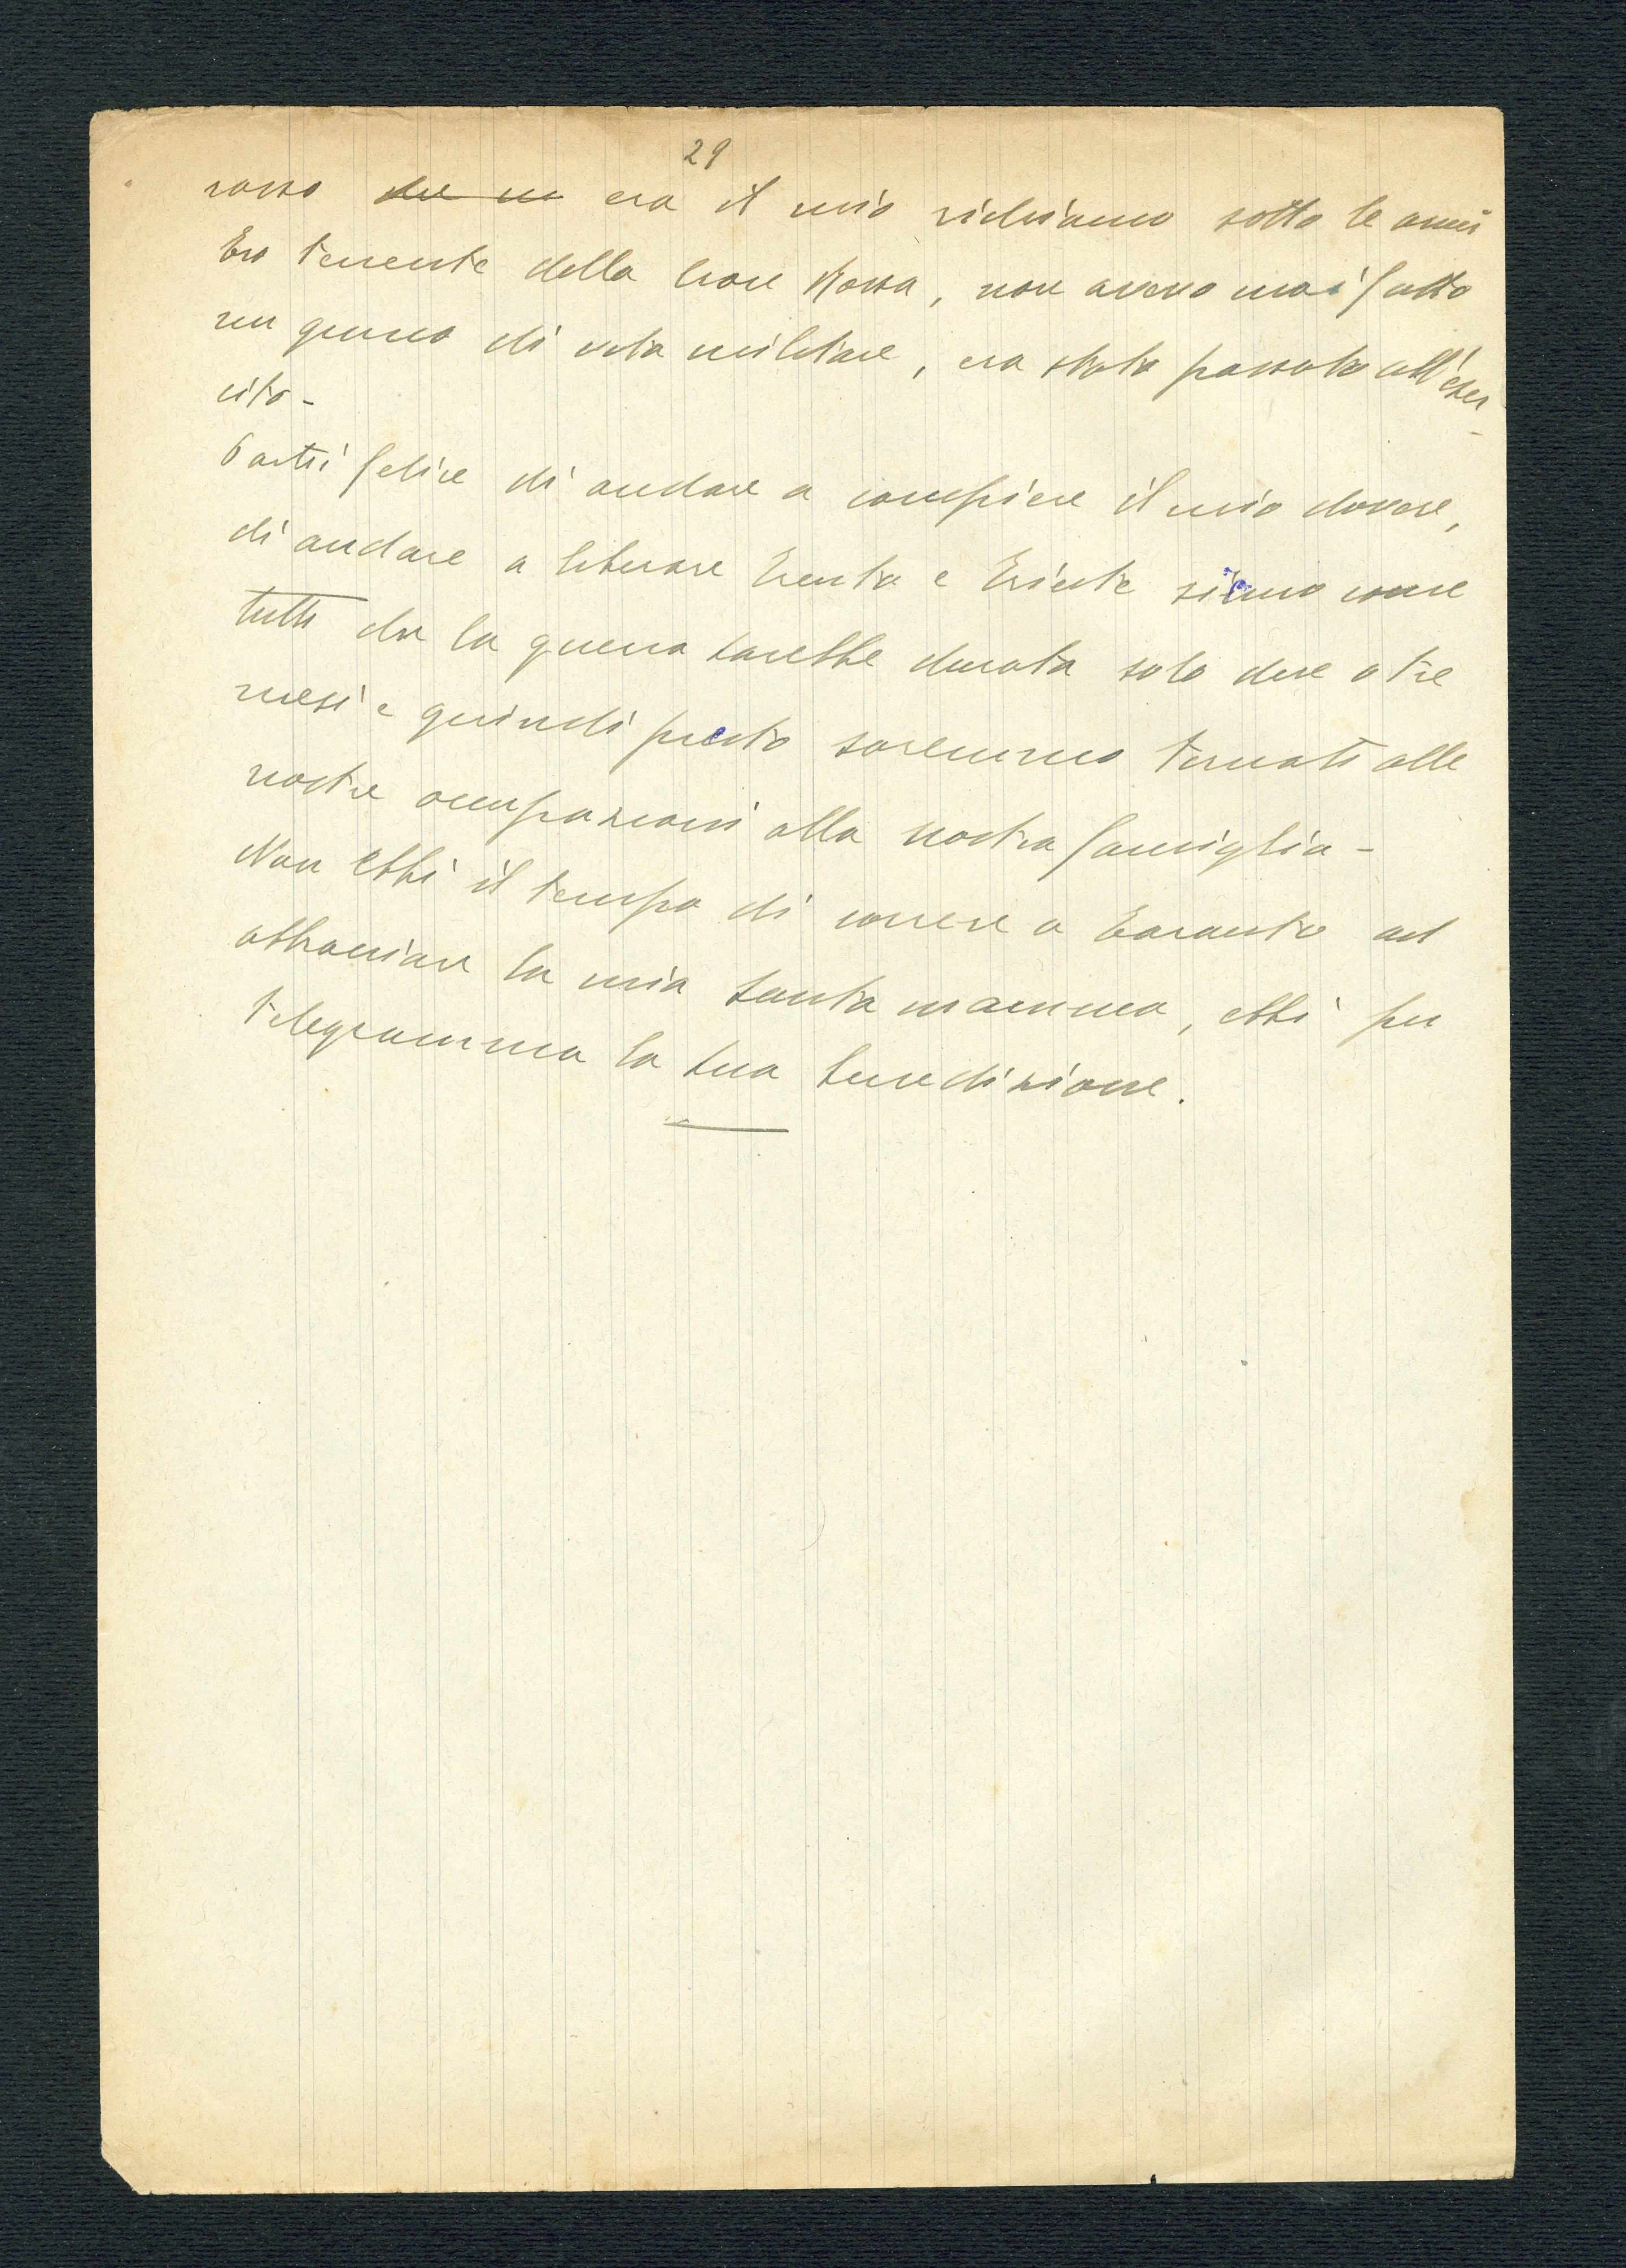 29
rosso che m era il mio richiamo sotto le armi
Ero tenente della Croce Rossa, non avevo mai fatto
un giorno di vita militare, era stato passato all'eser
cito -
Partii felice di andare a compiere il mio dovere,
di andare a liberare Trento e Trieste come
tutti che la guerra sarebbe durata solo due o tre
mesi e quindi presto saremmo tornati alle
nostre occupazioni alla nostra famiglia -
Non ebbi il tempo di correre a Taranto ad
abbracciare la mia santa mamma, ebbi per
telegramma la sua benedizione.